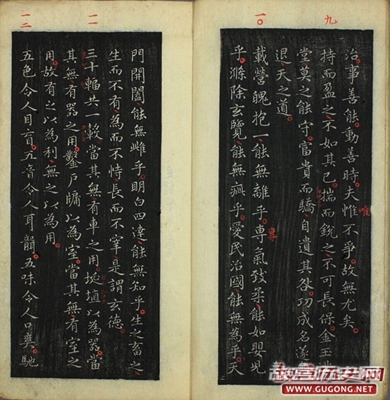 九
治事善能動善時夫惟不爭故無尤矣
持而盈之不如其已揣而銳之不可長保金玉
堂莫之能守富貴而驕自遺其咎功成名遂
退天之道
一〇
載營魄抱一能無離乎專氣致柔能如嬰兒
乎滌除玄覽能無疵乎愛民治國能無為乎天
門開闔能無雌乎明白四達能無知乎生之畜之
生而不有為而不恃長而不宰是謂玄德
一一
三十輻共一轂當其無有車之用埏埴以為器當
其無有器之用鑿戶牖以為室當其無有室之
用故有之以為利無之以為用
一二
五色令人目盲五音令人耳聾五味令人口爽馳